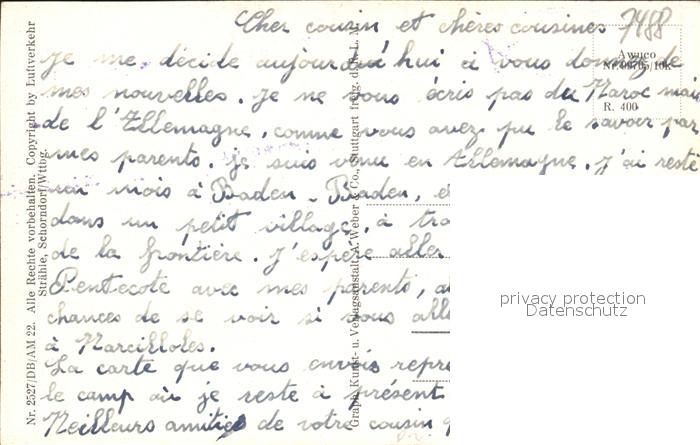 Cher cousin et chères cousines 7488
Je me décide aujourd'hui à vous donner de
mes nouvelles. Je ne vous écris pas du Maroc mais
de l'Allemagne, comme vous avez pu le savoir par
mes parents. Je suis venu en Allemagne. J'ai resté
un mois à Baden-Baden, e
dans un petit village, à
de la frontière. J'espère aller
Pentecote avec mes parents,
chances de se voir si vous all
à Marcilloles.
La carte que vous envois repré
le camp où je reste à présent
Meilleurs amitiés de votre cousin
Awuco
R. 400
Nr. 2527/DB/AM 22. Alle Rechte vorbehalten. Copyright by Luftverkehr
Strähle, Schorndorf/Wttbg.
Graph. Kunst- u. Verlagsanstalt A. Weber & Co., Stuttgart freig. d. R. L. M.
privacy protection
Datenschutz